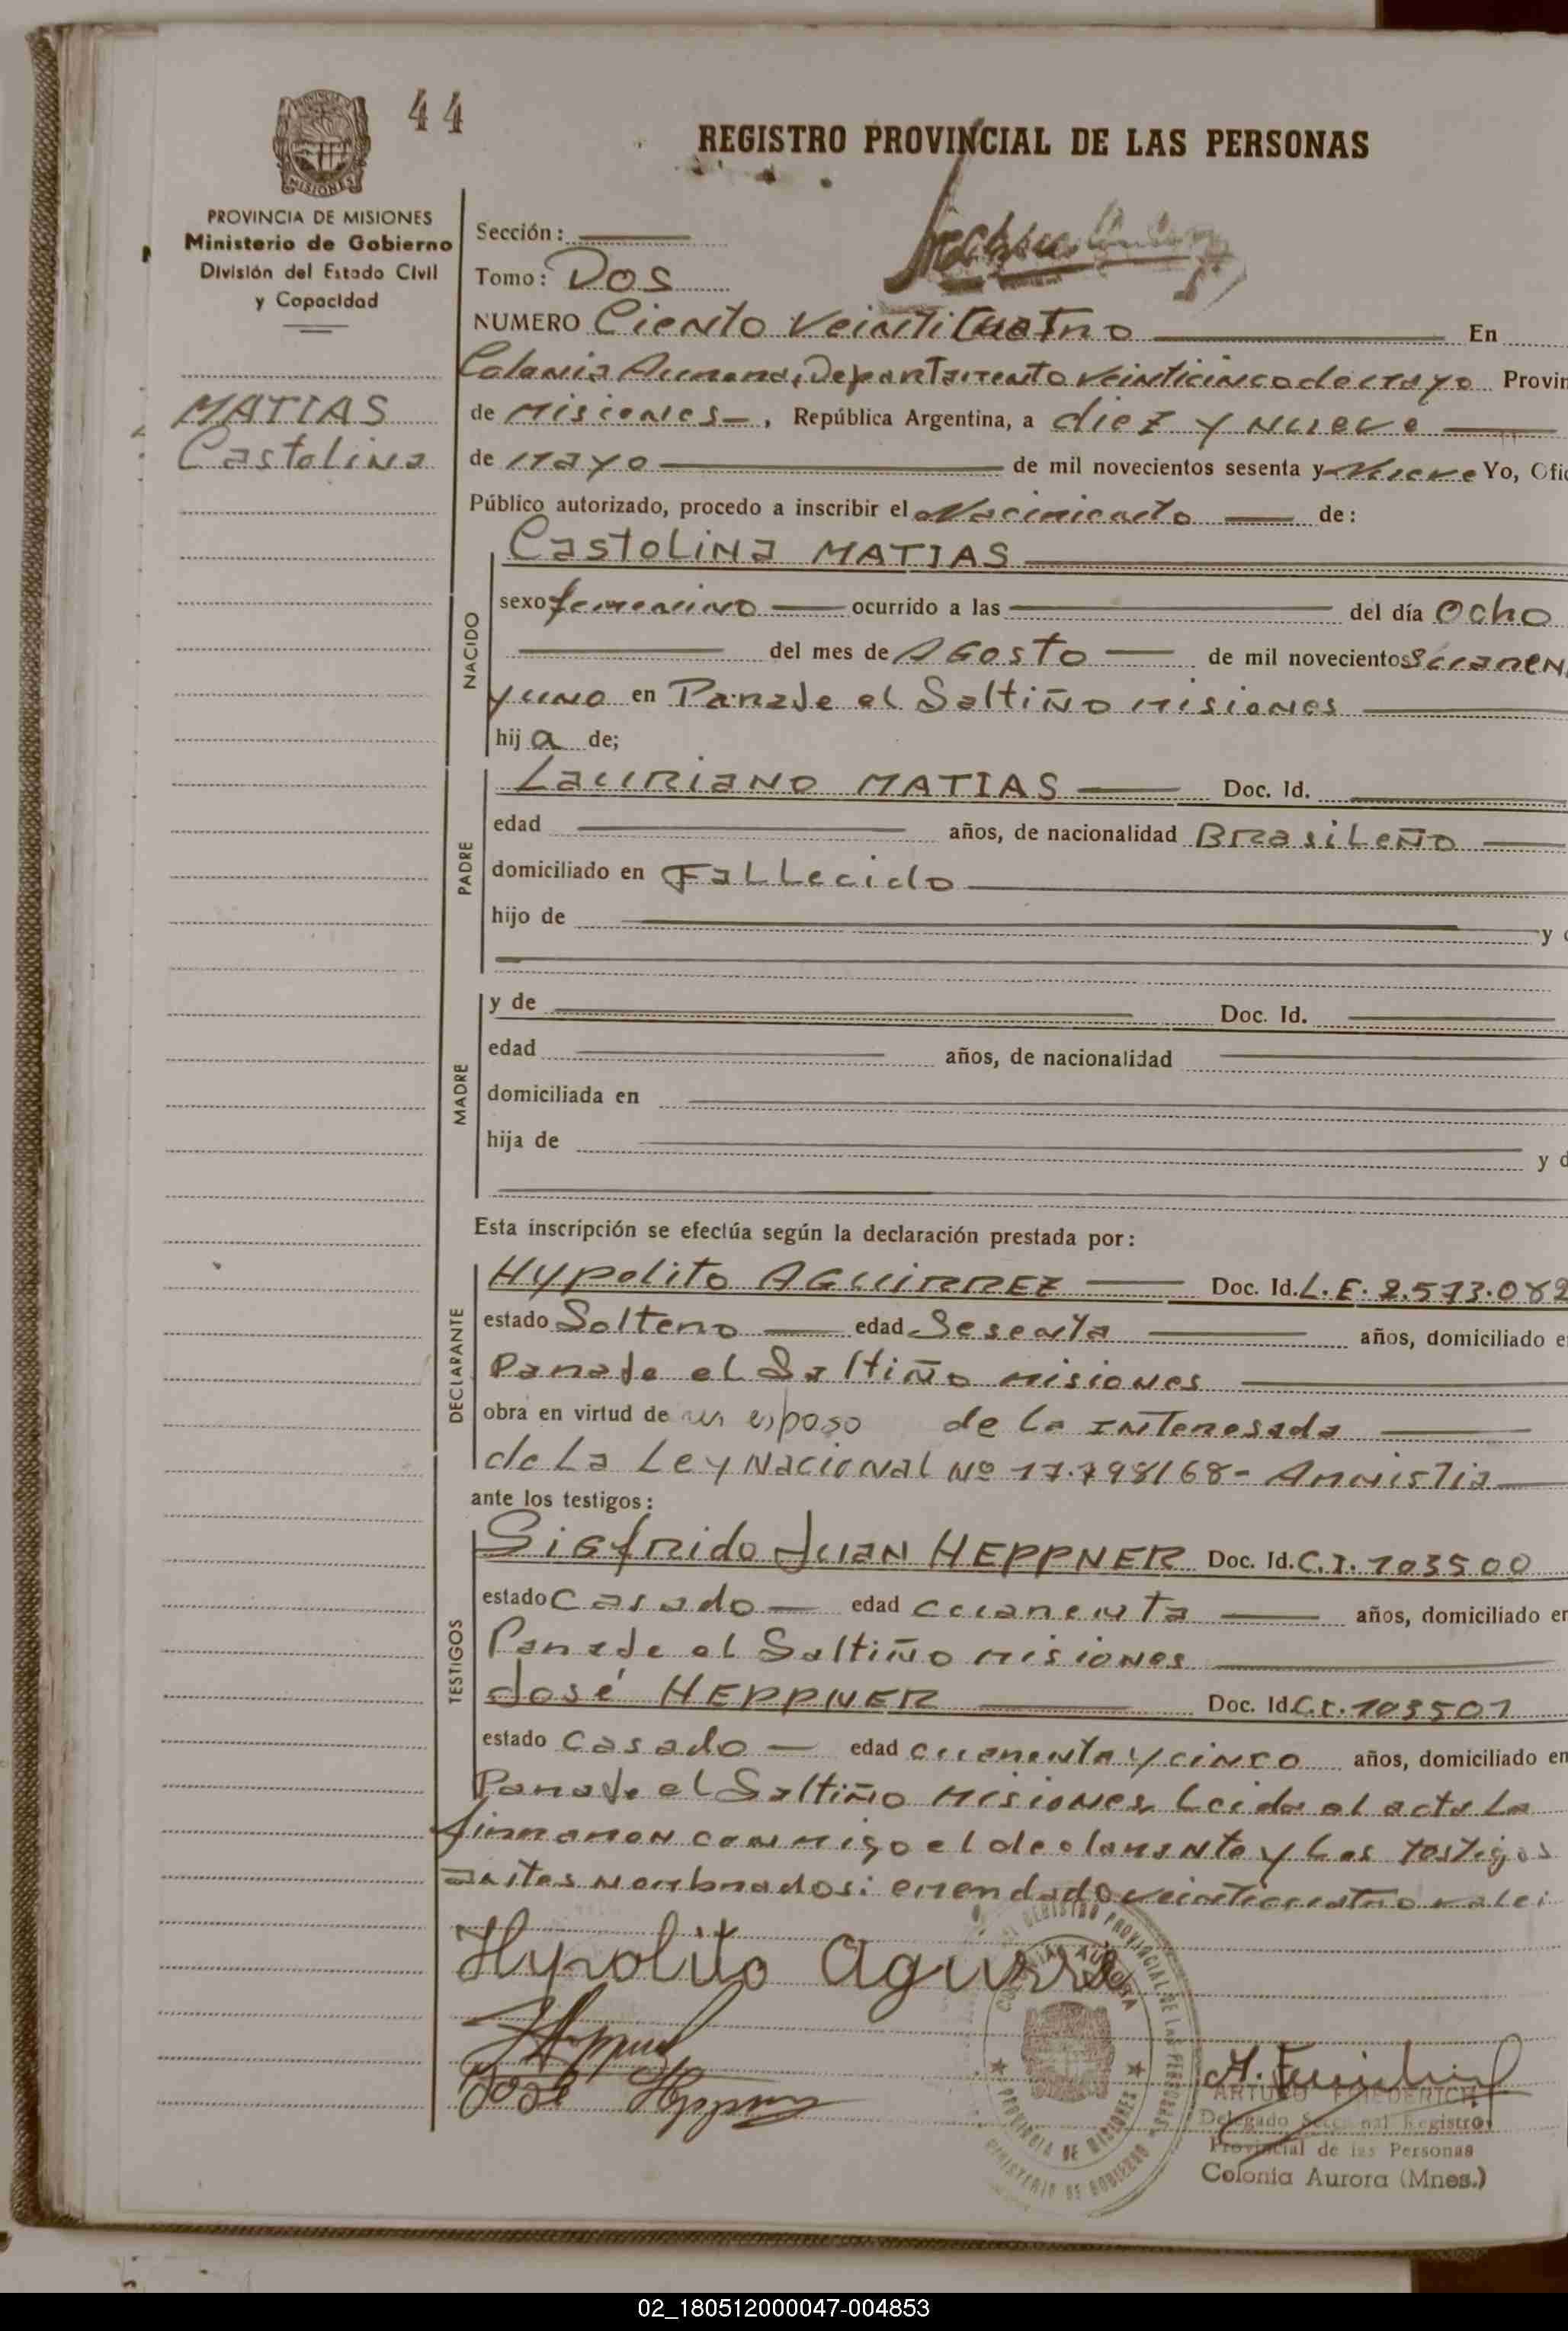 44
REGISTRO PROVINCIAL DE LAS PERSONAS
MISIONES
PROVINCIA DE MISIONES
Ministerio de Gobierno
División del Estado Civil
y Capacidad
MATIAS
Castolina
Sección:
Tomo: Dos
NUMERO Ciento VeintiCuatro En
Colonia Aurora, Departamento veinticinco de mayo Provin
de Misiones, República Argentina, a diez y nueve
de mayo de mil novecientos sesenta y Nueve Yo, Ofic
Público autorizado, procedo a inscribir el Nacimiento de:
NACIDO
Castolina MATIAS
sexo femenino ocurrido a las del día Ocho
del mes de Agosto de mil novecientos cuaren
y uno en Paraje el Saltiño misiones
hija de;
PADRE
Lauriano MATIAS Doc. Id.
edad años, de nacionalidad Brasileño
domiciliado en Fallecido
hijo de y
MADRE
y de Doc. Id.
edad años, de nacionalidad
domiciliada en
hija de y d
Esta inscripción se efectúa según la declaración prestada por:
DECLARANTE
Hypolito AGUIRREZ Doc. Id. L.E. 2.573.082
estado Soltero edad Sesenta años, domiciliado e
Paraje el Saltiño misiones
obra en virtud de esposo de la interesada
de La Ley Nacional Nº 17.798/68- Amnistia
ante los testigos:
TESTIGOS
Sigfrido Juan HEPPNER Doc. Id. C.I. 103500
estado Casado edad cuarenta años, domiciliado en
Paraje el Saltiño misiones
José HEPPNER Doc. Id. C.I. 103501
estado Casado edad cuarenta y cinco años, domiciliado en
Paraje el Saltiño Misiones Leida el acta La
firmaron conmigo el declarante y Los testigos
antes nombrados: enmendado veinticuatro vale:
Hypolito Aguirre
José Heppner
REGISTRO PROVINCIAL DE LAS PERSONAS
COLONIA AURORA
PROVINCIA DE MISIONES
MINISTERIO DE GOBIERNO
ARTURO FRIEDERICH
Delegado Seccional Registro
Provincial de las Personas
Colonia Aurora (Mnes.)
02_180512000047-004853